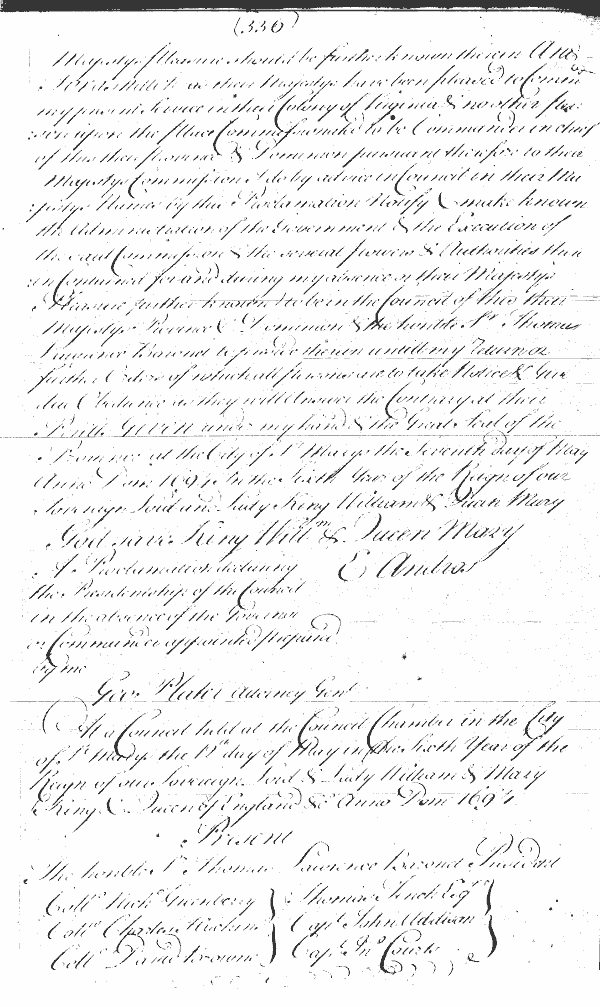 (330)
Majestys Pleasure should be further known therein And
Forasmuch as their Majestys have been pleased to Comm
my present Service in their Colony of Virginia & no other
upon the place Commissionated to be Commander in chief
of this their Province & Dominion pursuant therefore to their
Majestys Commission I do by advice in Council in their Ma
:jestys Names by this Proclamation Notify & make known
the Administration of the Government & the Execution of
the said Commission & the several powers & Authorities there
:in Contained for and during my absence or their Majestys
Pleasure further known to be in the Council of this their
Majestys Province & Dominion & the honble Sr Thomas
Lawrence Baronet to preside therein untill my return or
further Orders of which all persons are to take Notice & give
due Obedience as they will answer the Contrary at their
Perills Given under my hand & the Great Seal of the
Province at the City of St Marys the Seventh day of May
Anno Dom 1694 In the Sixth Year of the Reign of our
Sovereign Lord and Lady King William & Quen Mary
God save King Willm & Queen Mary
A Proclamation declaring E Andros
the Presidentship of the Council
in the absence of the Governor
or Commander appointed prepared
by me
Geo: Plater Attorney Genl
At a Council held at the Council Chamber in the City
of St Marys the day of May in the Sixth Year of the
Reign of our Sovereign Lord & Lady William & Mary
King & Queen of England &c Anno Dom 1694
Present
The honble Sr Thomas Lawrence Baronet President
Collo Nicho Greenberry Thomas Tench Esqr
Collo Charles Hutchins Capt John Addison
Collo David Browne Capt Jno Courts